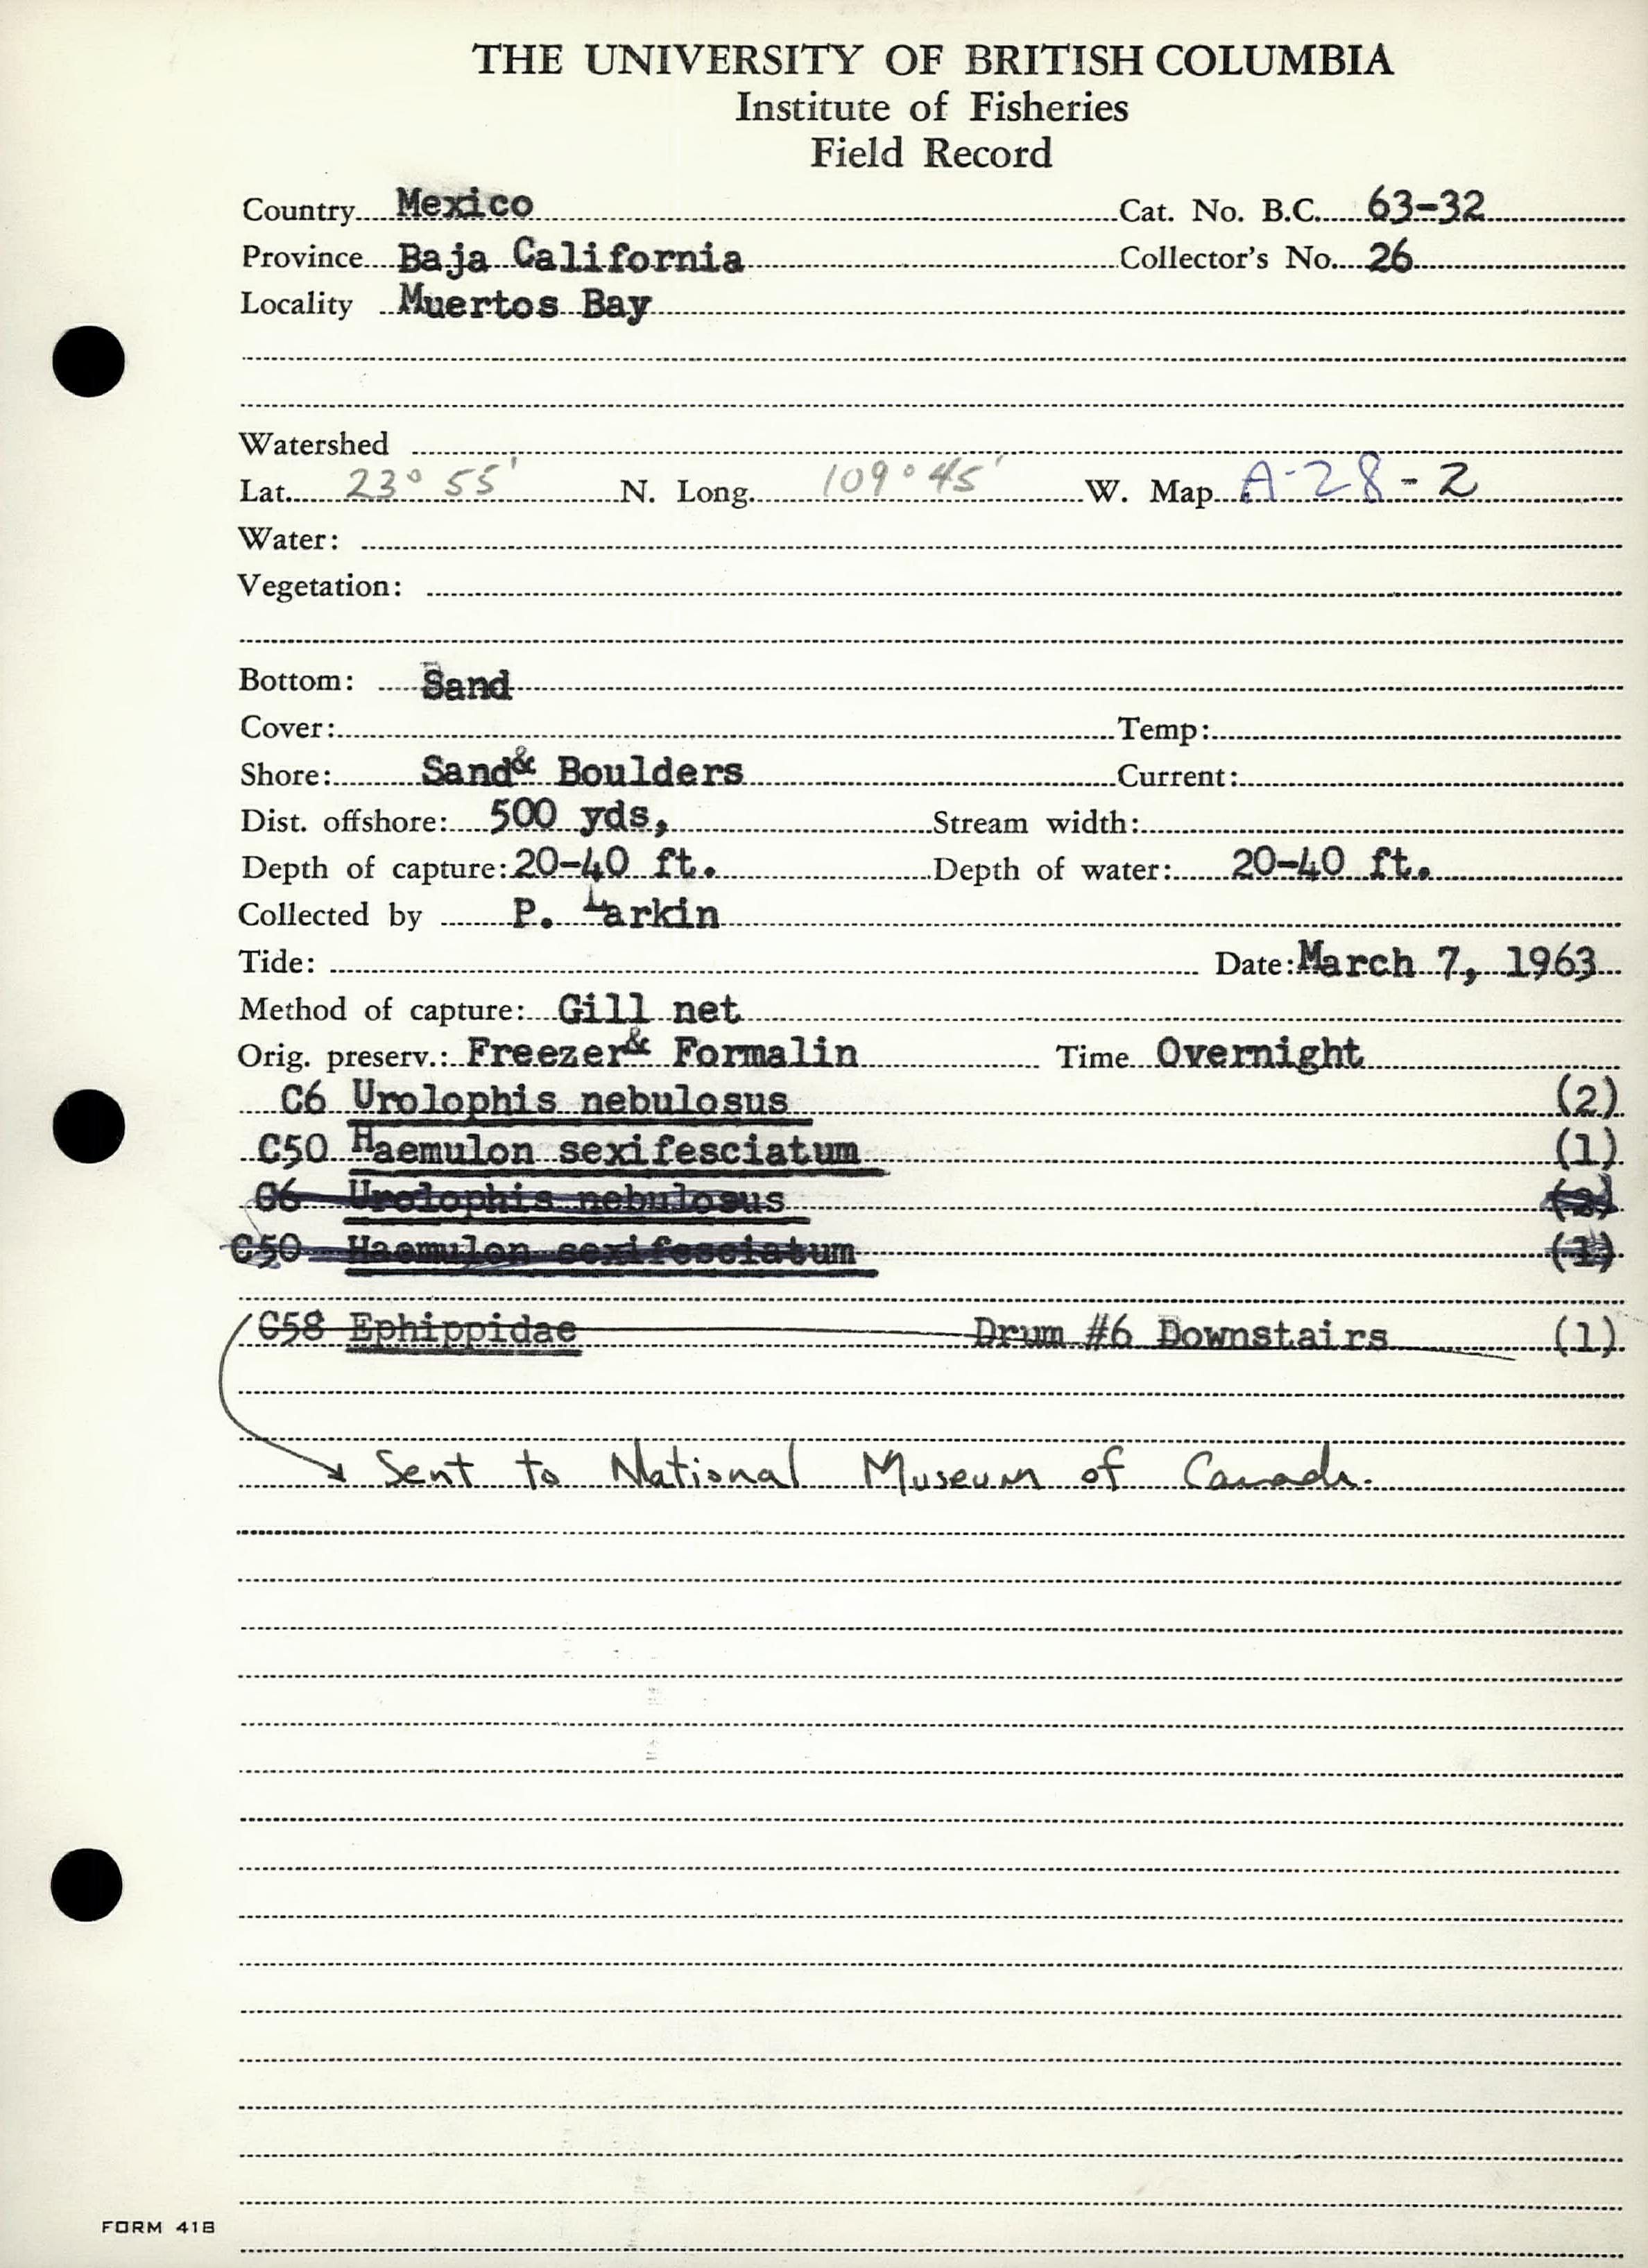 THE UNIVERSITY OF BRITISH COLUMBIA
Institute of Fisheries
Field Record
Country Mexico Cat. No. B.C. 63-32
Province Baja California Collector's No. 26
Locality Muertos Bay
Watershed
Lat. 23° 55' N. Long. 109° 45' W. Map A-28-2
Water:
Vegetation:
Bottom: Sand
Cover: Temp:
Shore: Sand & Boulders Current:
Dist. offshore: 500 yds, Stream width:
Depth of capture: 20-40 ft. Depth of water: 20-40 ft.
Collected by P. Larkin
Tide: Date: March 7, 1963
Method of capture: Gill net
Orig. preserv.: Freezer & Formalin Time Overnight
C6 Urolophis nebulosus (2)
C50 Haemulon sexifesciatum (1)
C6 Urolophis nebulosus (2)
C50 Haemulon sexifesciatum (1)
C58 Ephippidae Drum #6 Downstairs (1)
Sent to National Museum of Canada.
FORM 41B